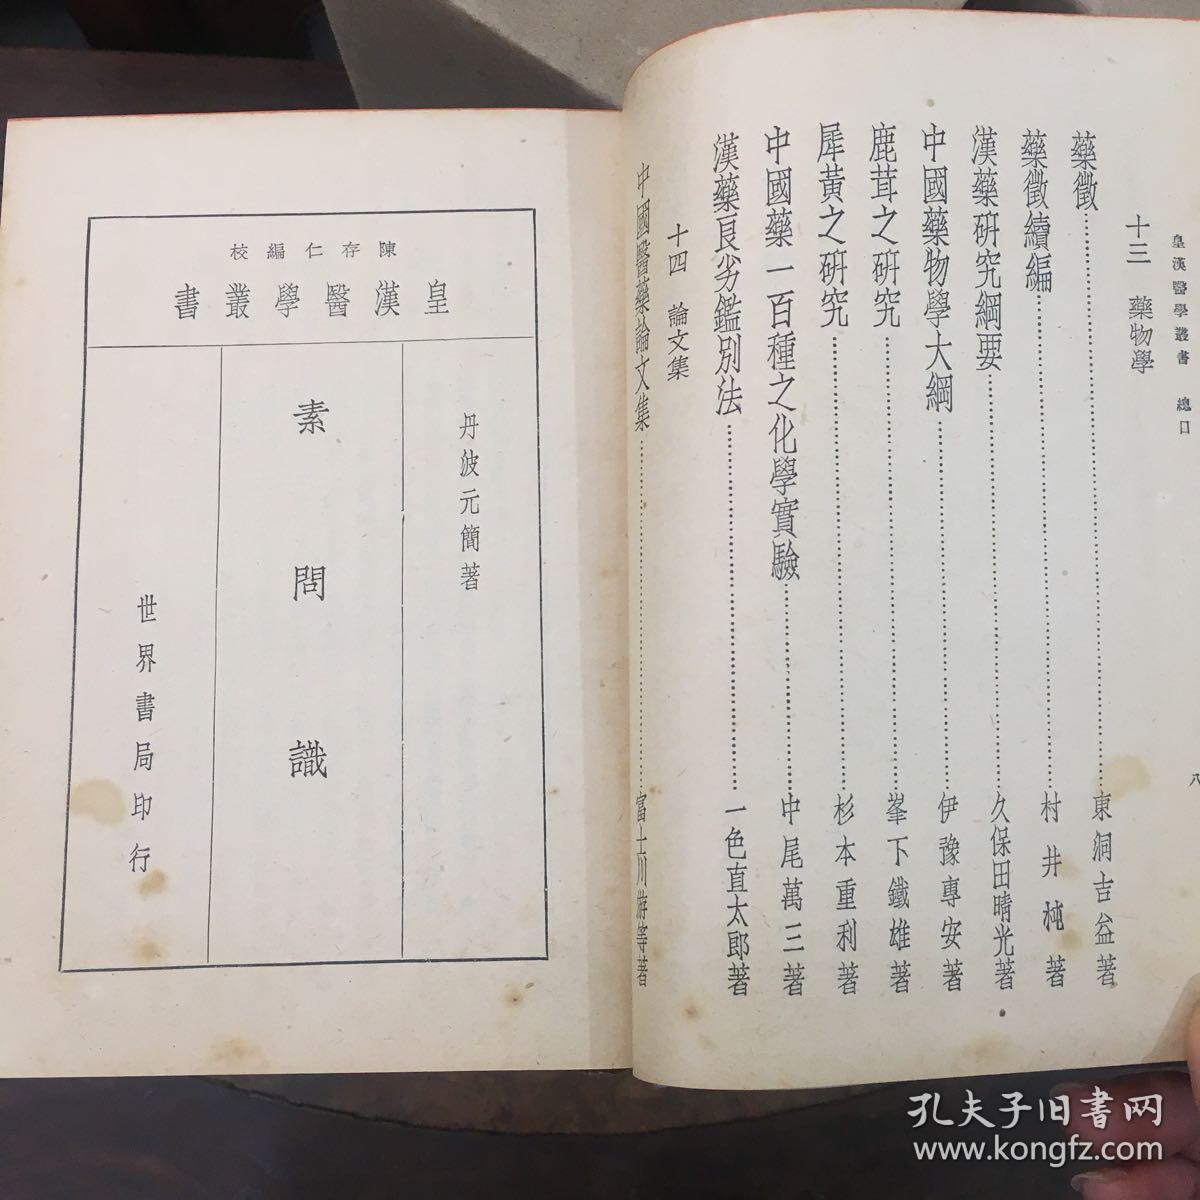 皇漢醫學叢書　總目
八
十三　藥物學
藥徵……東洞吉益著
藥徵續編……村井杶著
漢藥研究綱要……久保田晴光著
中國藥物學大綱……伊豫專安著
鹿茸之研究……峯下鐵雄著
犀黃之研究……杉本重利著
中國藥一百種之化學實驗……中尾萬三著
漢藥良劣鑑別法……一色直太郎著
十四　論文集
中國醫藥論文集……富士川游等著
陳存仁編校
皇漢醫學叢書
丹波元簡著
素問識
世界書局印行
孔夫子旧书网
www.kongfz.com